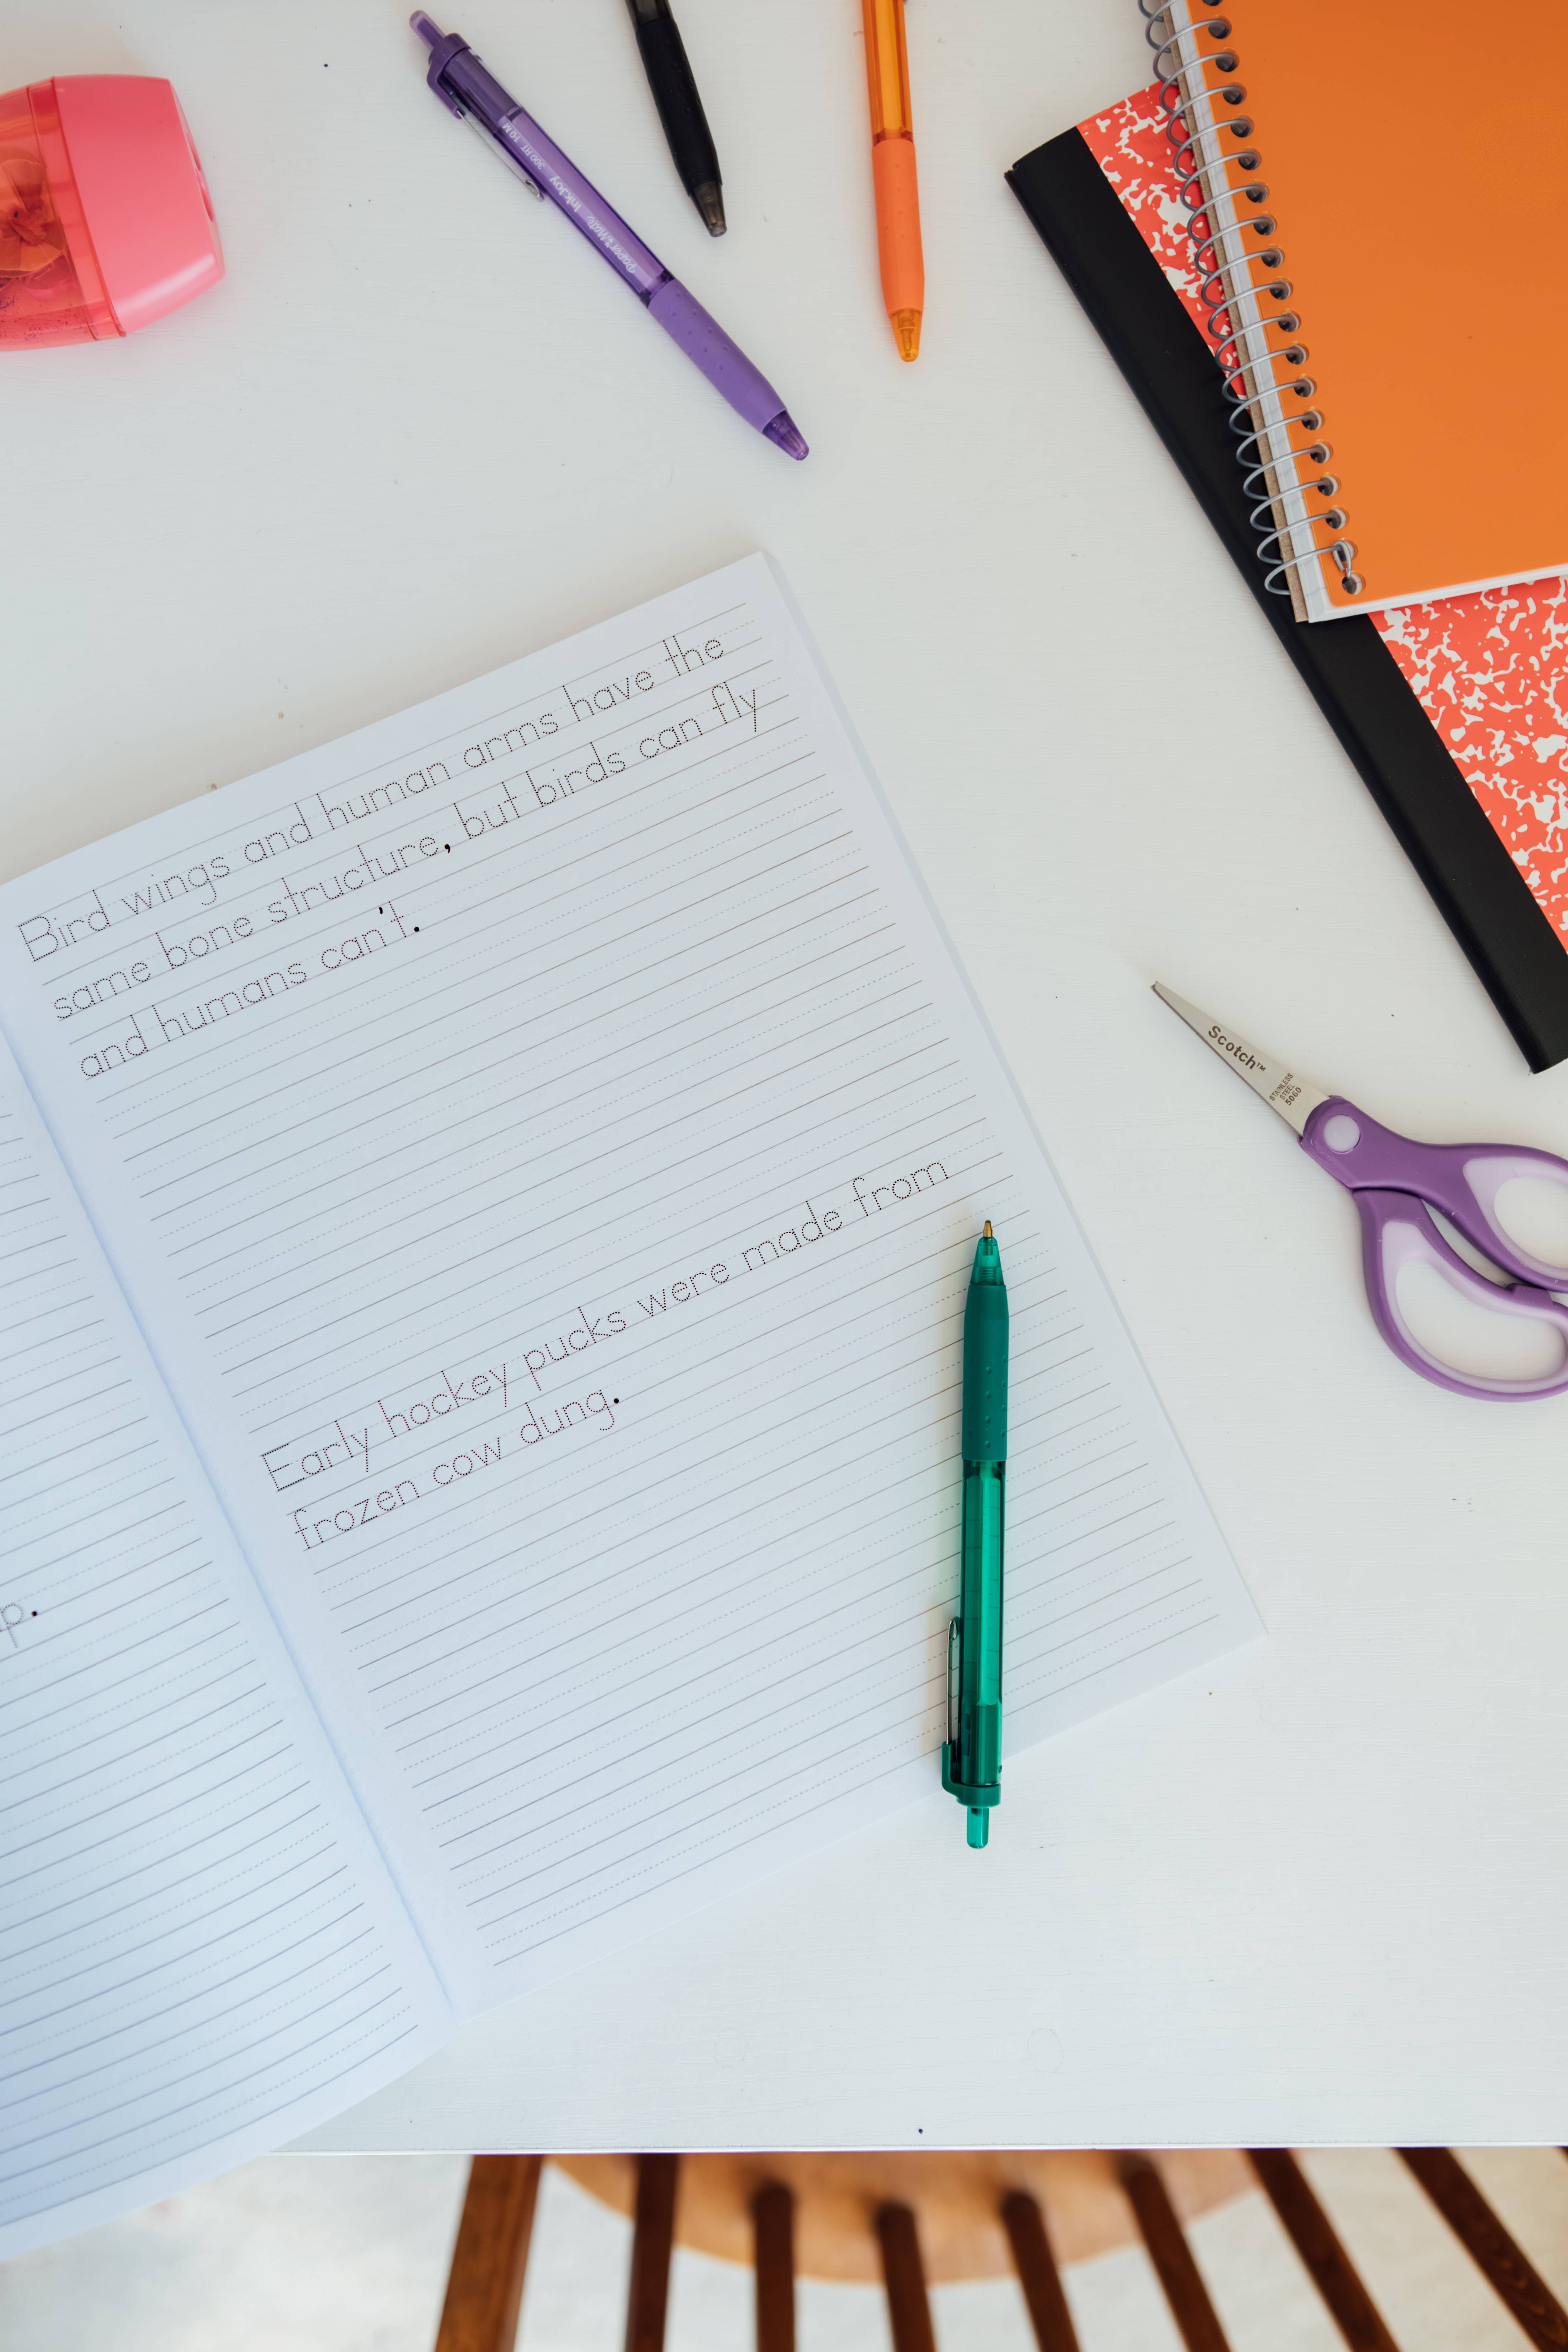 PaperMate InkJoy 300 RT 1.0M
Bird wings and human arms have the
same bone structure, but birds can fly
and humans can't.
Scotch™
STAINLESS
STEEL
5060
Early hockey pucks were made from
frozen cow dung.
p.